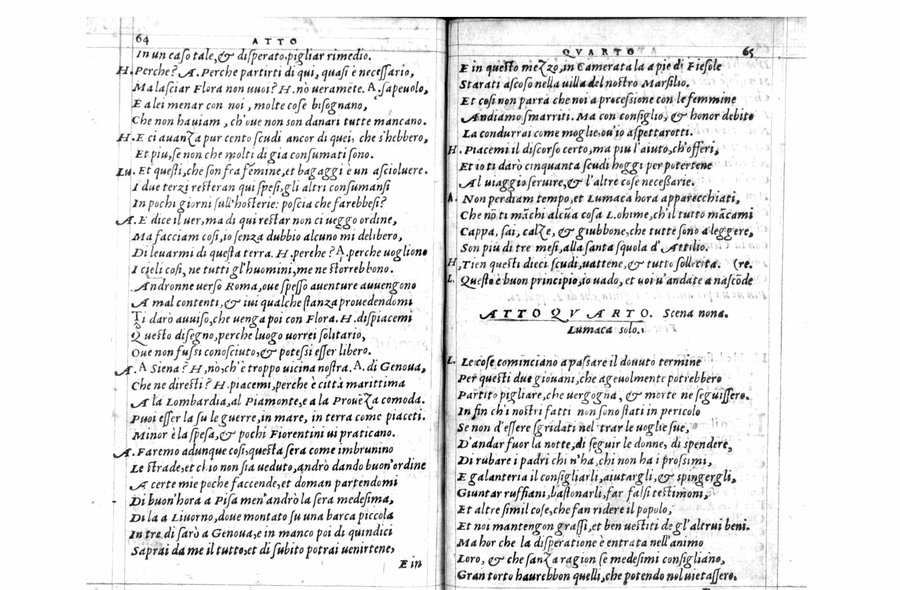 64 ATTO
In un caso tale, & disperato, pigliar rimedio.
H. Perche? A. Perche partirti di qui, quasi è necessario,
Ma lasciar Flora non vuoi? H. nò veramēte. A. sapeuolo,
E a lei menar con noi, molte cose bisognano,
Che non hauiam, ch'oue non son danari tutte mancano.
H. E ci auanza pur cento scudi ancor di quei, che s'hebbero,
Et piu, se non che molti di gia consumati sono.
Lu. Et questi, che son fra femine, et bagaggi è un ascioluere.
I due terzi resteran qui spesi, gli altri consumansi
In pochi giorni sull'hosterie: poscia che farebbesi?
A. E dice il uer, ma di qui restar non ci ueggo ordine,
Ma facciam cosi, io senza dubbio alcuno mi delibero,
Di leuarmi di questa terra. H. perche? A. perche uogliono
I cieli cosi, ne tutti gl'huomini, me ne storrebbono.
Andronne verso Roma, oue spesso auenture auuengono
A mal contenti, & iui qualche stanza prouedendomi
Ti darò auuiso, che uenga poi con Flora. H. dispiacemi
Questo disegno, perche luogo uorrei solitario,
Oue non fussi conosciuto, & potessi esser libero.
A. A Siena? H. nò, ch'è troppo uicina nostra. A. di Genoua,
Che ne diresti? H. piacemi, perche è città marittima
A la Lombardia, al Piamonte, e a la Prouēza comoda.
Puoi esser la su le guerre, in mare, in terra come piaceti.
Minor è la spesa, & pochi Fiorentini ui praticano.
A. Faremo adunque cosi, questa sera come imbrunino
Le strade, et ch'io non sia ueduto, andrò dando buon'ordine
A certe mie poche faccende, et doman partendomi
Di buon'hora a Pisa men'andrò la sera medesima,
Di la a Liuorno, doue montato su una barca piccola
In tre dì sarò a Genoua, e in manco poi di quindici
Saprai da me il tutto, et di subito potrai uenirtene,
E in
QVARTO 65
E in questo mezzo, in Camerata la a pie di Fiesole
Starati ascoso nella uilla del nostro Marsilio.
Et cosi non parrà che noi a processione con le femmine
Andiamo smarriti. Ma con consiglio, & honor debito
La condurrai come moglie, ou'io aspettarotti.
H. Piacemi il discorso certo, ma piu l'aiuto, ch'offeri,
Et io ti darò cinquanta scudi hoggi per potertene
Al uiaggio seruire, & l'altre cose necessarie.
A. Non perdiam tempo, et Lumaca hora apparecchiati,
Che nō ti māchi alcūa cosa L. ohime, ch'il tutto mācami
Cappa, sai, calze, & giubbone, che tutte sono a leggere,
Son più di tre mesi, alla santa squola d'Attilio.
H. Tien questi dieci scudi, uattene, & tutto sollecita. (re.
L. Questo è buon principio, io uado, et uoi u'andate a nascōde
ATTO QVARTO. Scena nona.
Lumaca solo.
L. Le cose cominciano a passare il douuto termine
Per questi due giouani, che ageuolmente potrebbero
Partito pigliare, che uergogna, & morte ne seguissero.
In fin ch'i nostri fatti non sono stati in pericolo
Se non d'essere sgridati nel trar le uoglie sue,
D'andar fuor la notte, di seguir le donne, di spendere,
Di rubare i padri chi n'ha, chi non ha i prossimi,
E galanteria il consigliarli, aiutargli, & spingergli,
Giuntar ruffiani, bastonarli, far falsi testimoni,
Et altre simil cose, che fan ridere il popolo,
Et noi mantengon grassi, et ben uestiti de gl'altrui beni.
Ma hor che la disperatione è entrata nell'animo
Loro, & che sanza ragion se medesimi consigliano,
Gran torto haurebbon quelli, che potendo nol uietassero.